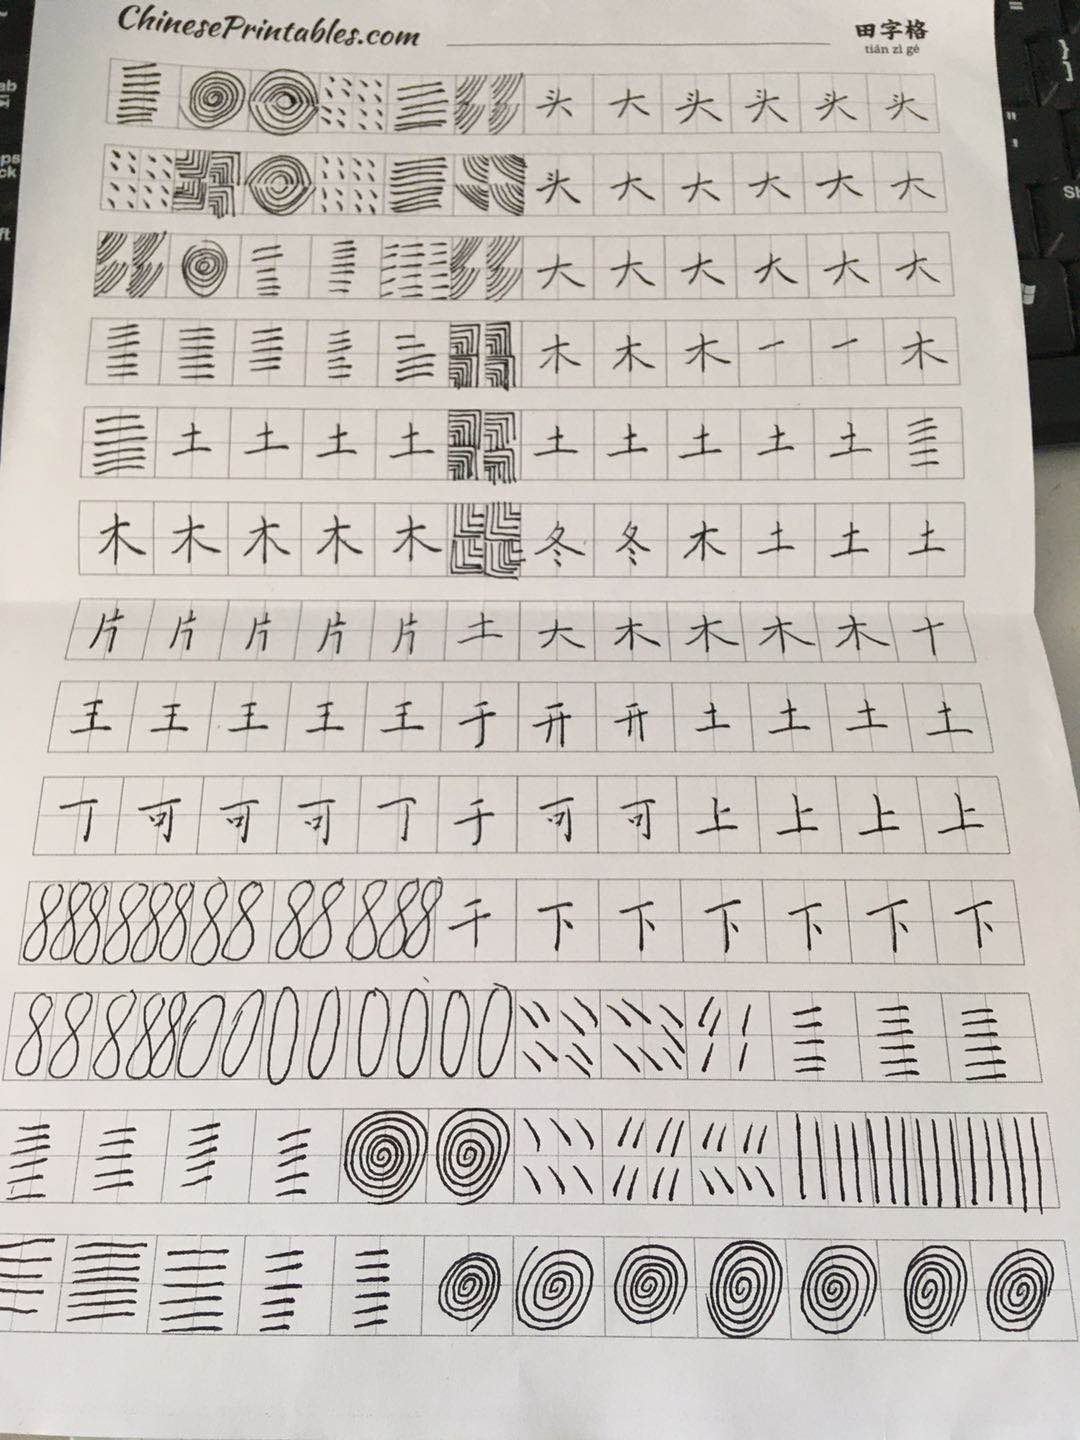 ChinesePrintables.com 田字格
tián zì gé
头 大 头 头 头 头
头 大 大 大 大 大
大 大 大 大 大 大
木 木 木 一 一 木
土 土 土 土 土 土 土 土 土
木 木 木 木 木 冬 冬 木 土 土 土
片 片 片 片 片 土 大 木 木 木 木 十
王 王 王 王 王 于 开 开 土 土 土 土
丁 可 可 可 丁 于 可 可 上 上 上 上
888 888 88 88 888 千 下 下 下 下 下 下
88 888 00 00 00 00